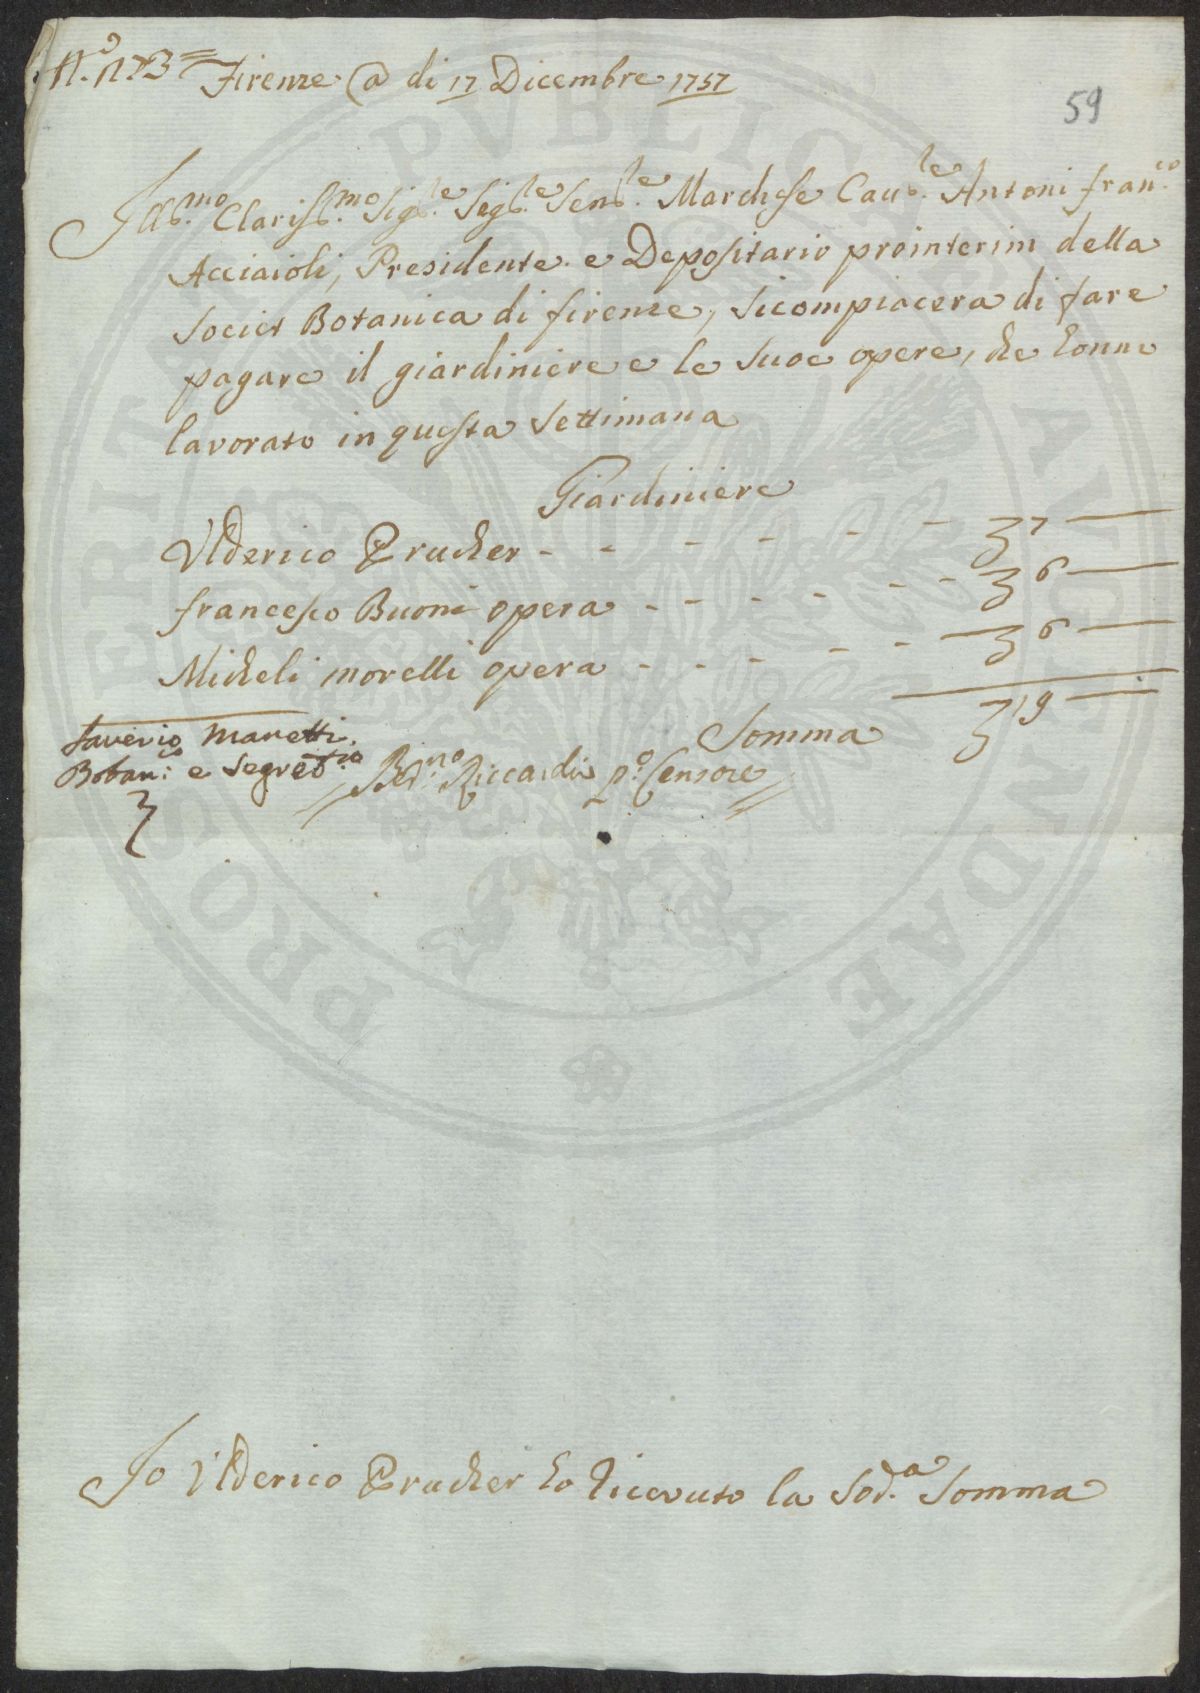 N.o 173 = Firenze a di 17 Dicembre 1757
59
Ill.mo Clariss.mo Sig.re Sig.re Sen.re Marchese Cau.re Antoni fran.co
Acciaioli, Presidente e Depositario prointerim della
Societ Botanica di firenze, si compiacera di fare
pagare il giardiniere e le suoe opere, che honno
lavorato in questa Settimana
Giardiniere
Ulderico Prucher - - - - - - 7 —
francesco Buoni opera - - - - - - 6 —
Micheli morelli opera - - - - - 6 —
Somma 19 —
Saverio Manetti
Botan.co e Segret.rio
Bern.no Riccardi p.o Censore
Io Ulderico Prucher ho ricevuto la Sod.a Somma
PROSPERITATI PVBLICAE AVGENDAE